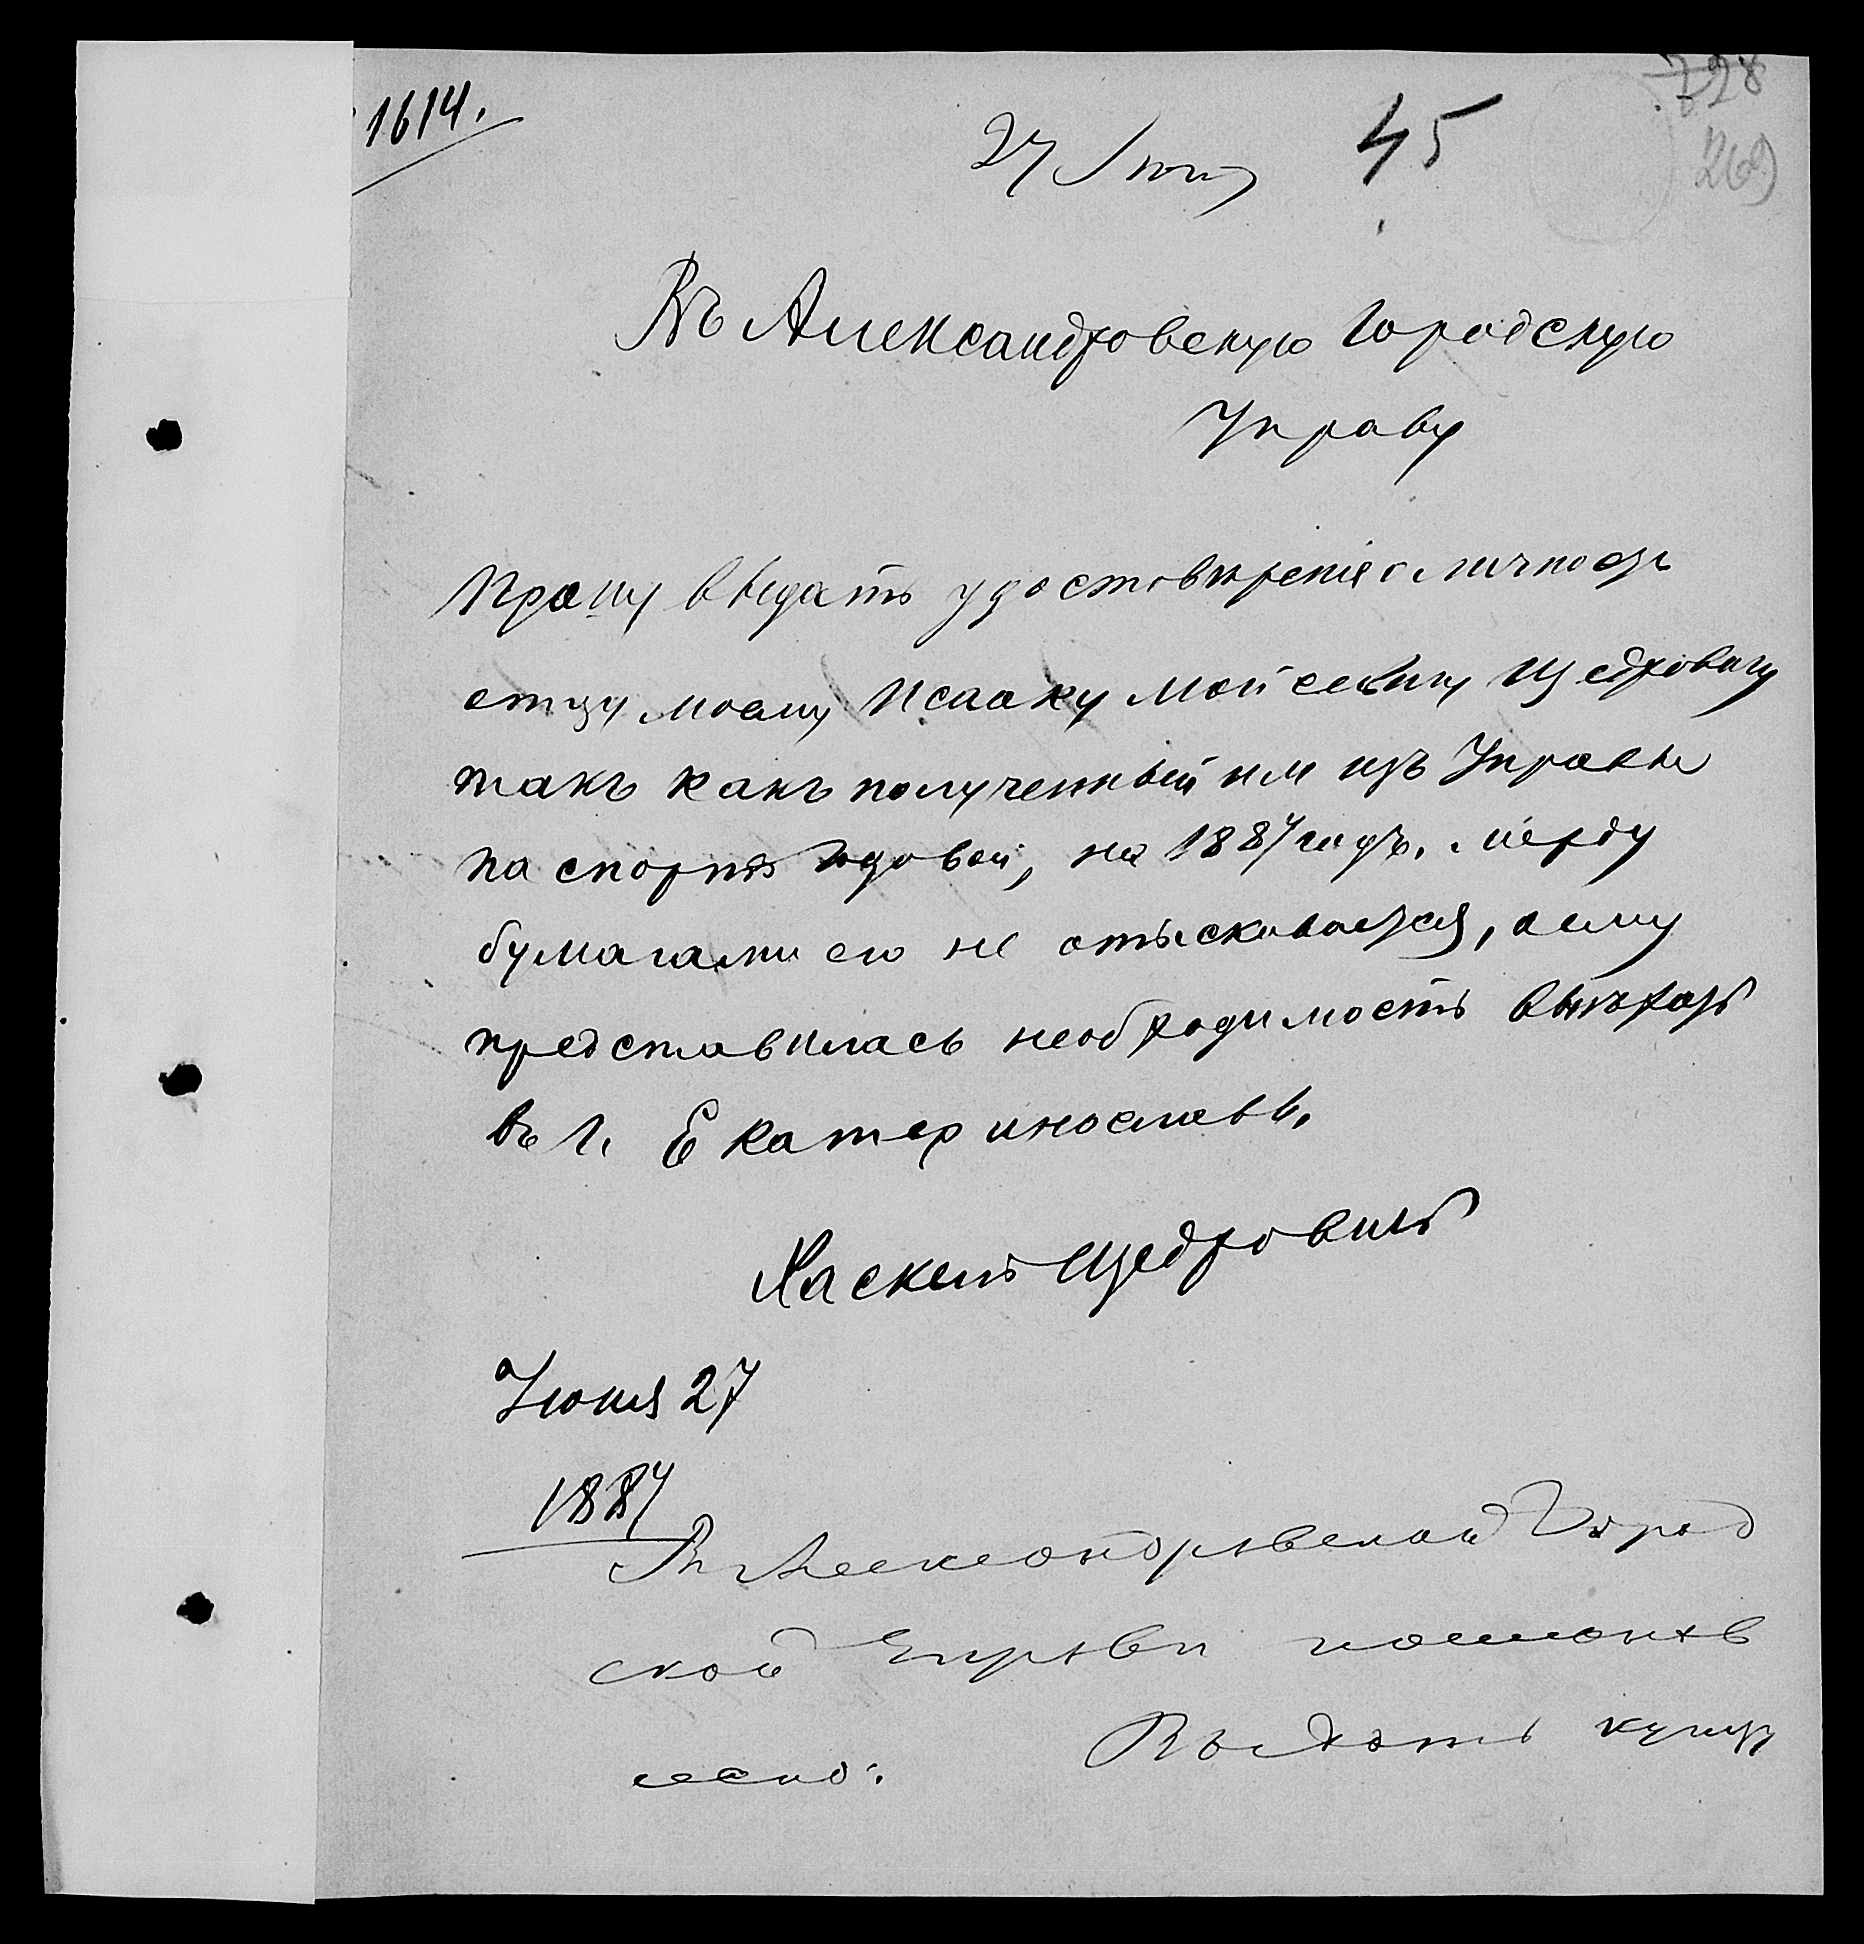 1614.
27 Іюня 45
228
269
Въ Александровскую Городскую
Управу
Прошу выдать удостовѣренія о личности
отцу моему Исааку Мойсеевичу Щедровичу
такъ какъ полученный им изъ Управы
паспортъ годовой, на 1887 годъ. между
бумагами его не отыскивается, а ему
представилась необходимость выѣхать
въ г. Екатеринославъ.
Хаскель Щедровичъ
Іюня 27
1887
В Александровской Город
ской Управы
Выдать купцу